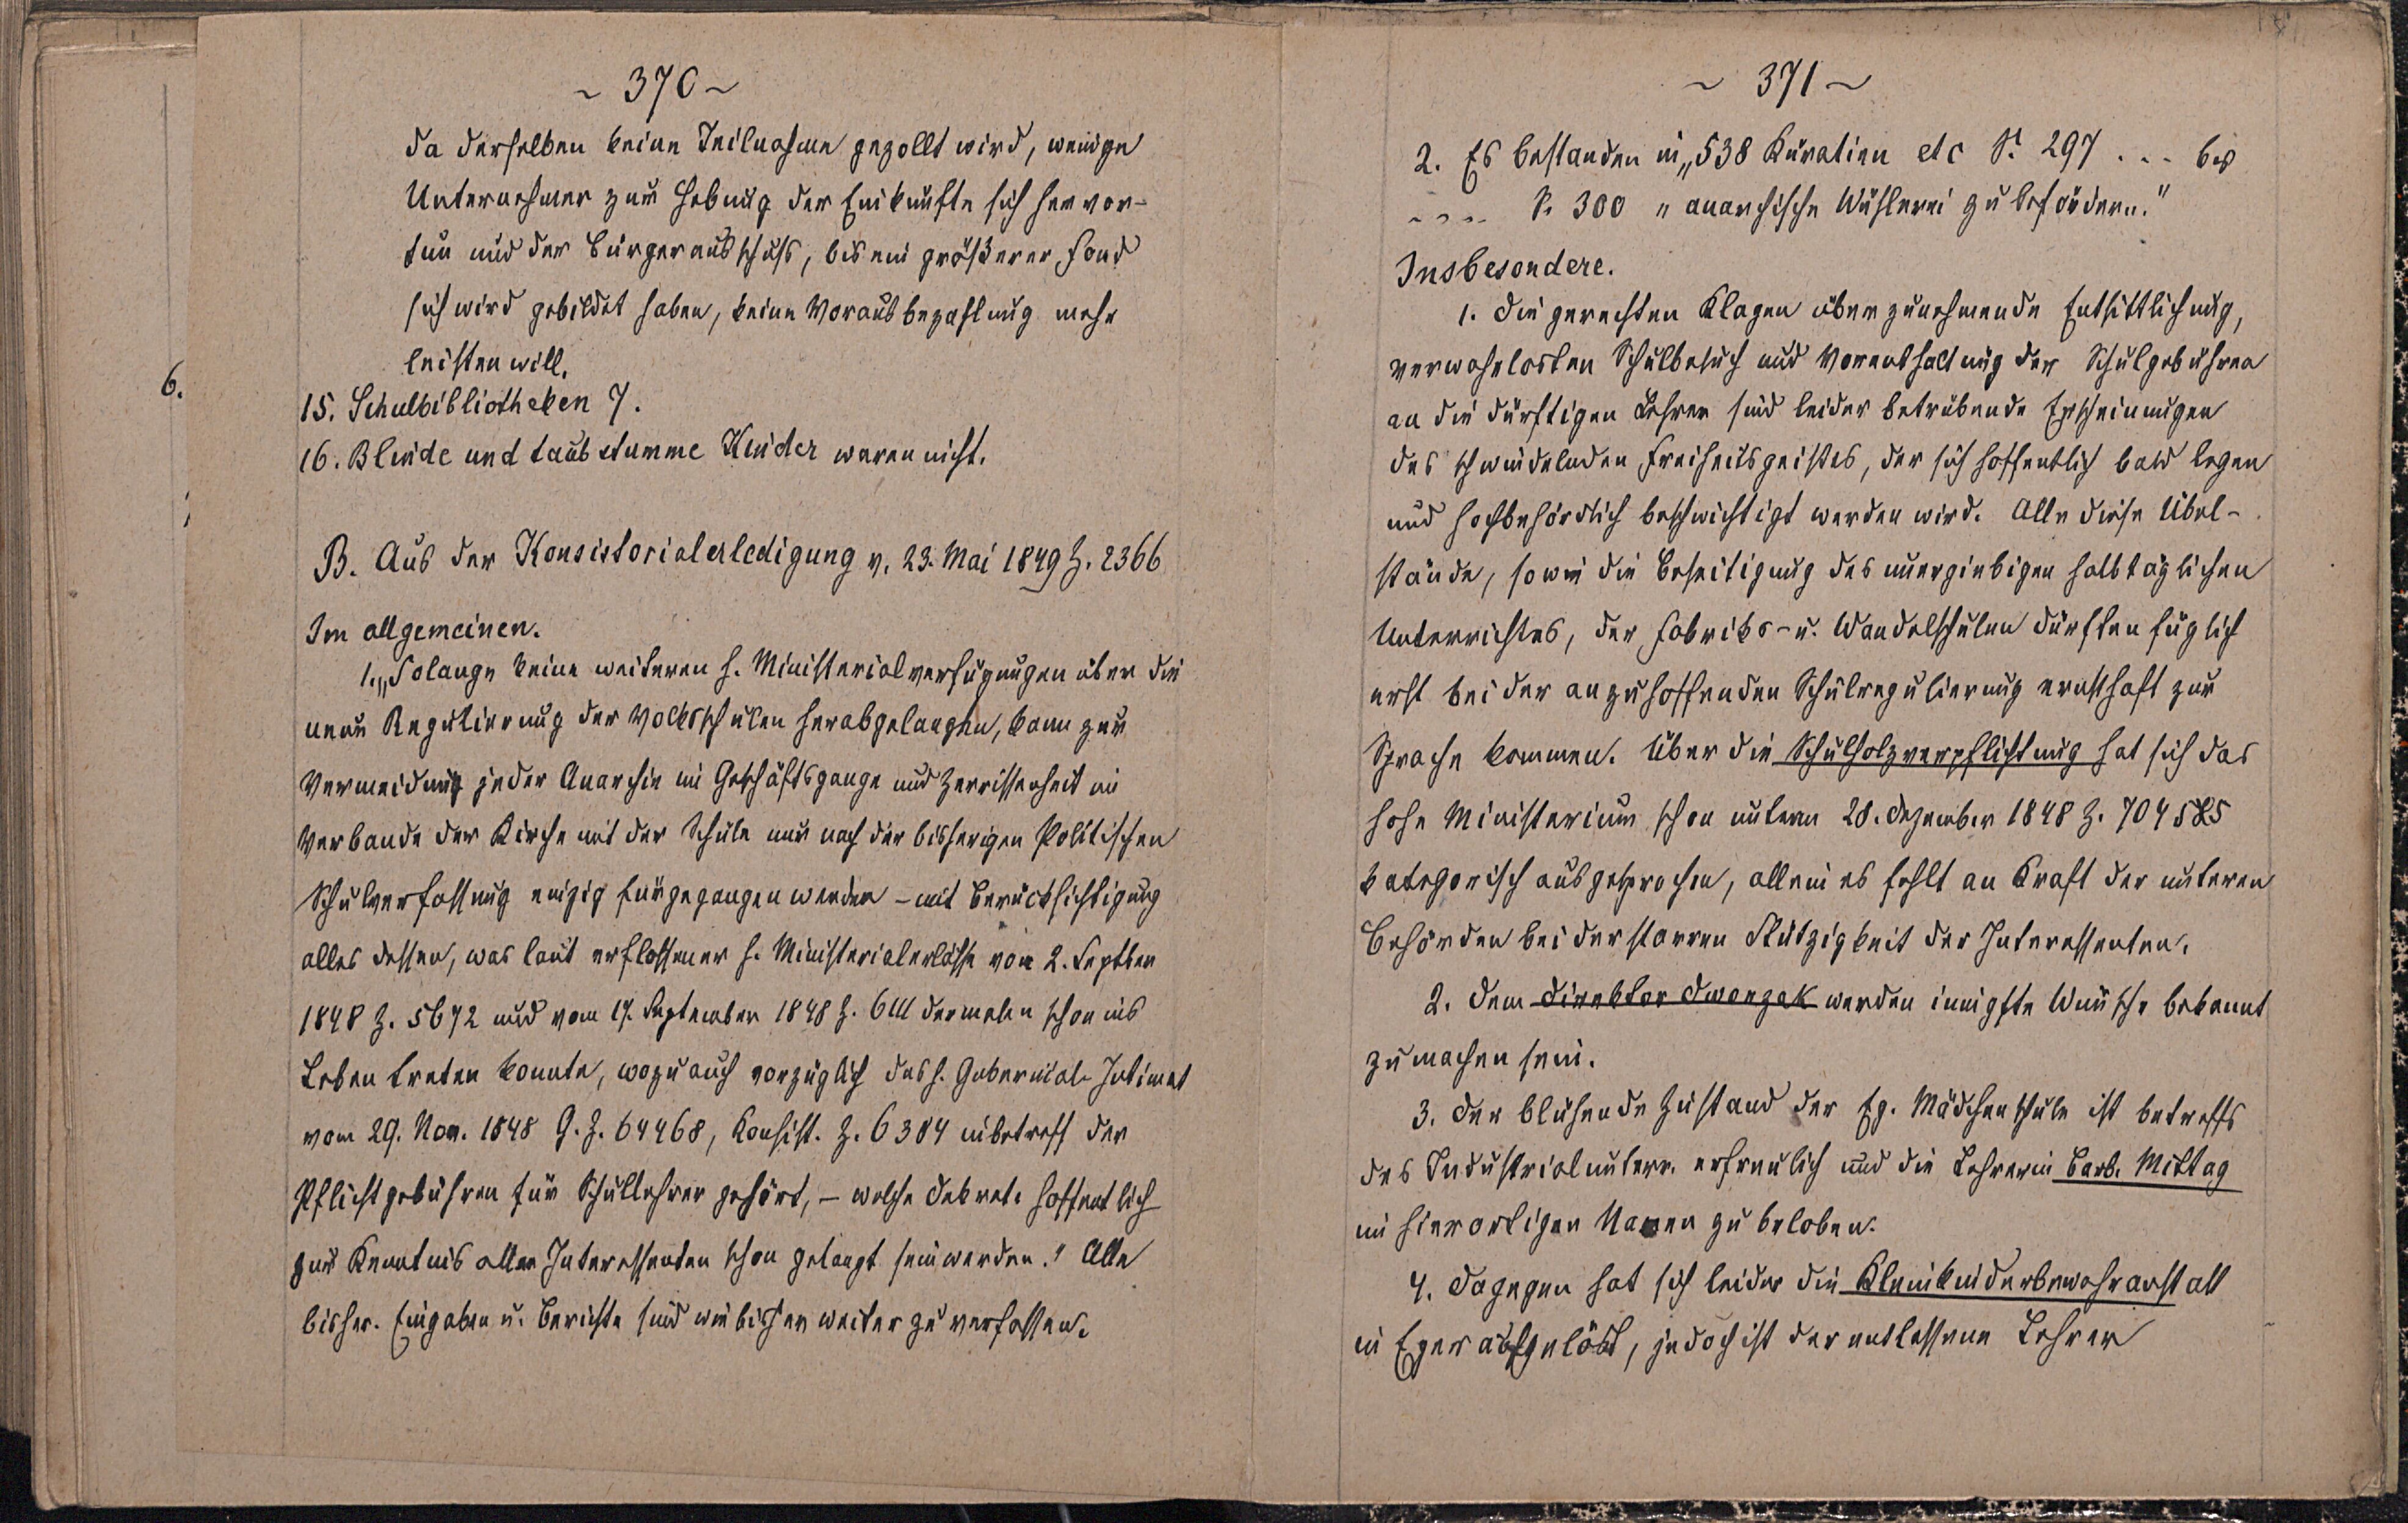 ~ 370 ~
da derselben keine Teilnahme gezollt wird, wenige
Unternehmer zur Hebung der Einkünfte sich hervor-
tun und der Bürgerausschuß, bis ein größerer Fond
sich wird gebildet haben, keine Vorausbezahlung mehr
leisten will.
6.
15. Schulbibliotheken 7.
16. Blinde und taubstumme Kinder waren nicht.
B. Aus der Konsistorialerledigung v. 23. Mai 1849 Z. 2366
Im allgemeinen.
1. „Solange keine weiteren h. Ministerialverfügungen über die
neue Regulierung der Volksschulen herabgelangen, kann zur
Vermeidung jeder Anarchie im Geschäftsgange und Zerrissenheit im
Verbande der Kirche mit der Schule nur nach der bisherigen Politischen
Schulverfassung einzig fürgegangen werden – mit Berücksichtigung
alles dessen, was laut erflossener h. Ministerialerlässe vom 2. Septber
1848 Z. 5672 und vom 17. September 1848 Z. dermalen schon ins
Leben treten konnte, wozu auch vorzüglich das h. Gubernial-Intimat
vom 29. Nov. 1848 G. Z. 64468, Konsist. Z. 6384 inbetreff der
Pflichtgebühren für Schullehrer gehört, – welche Dekrete hoffentlich
zur Kenntnis aller Interessenten schon gelangt sein werden." Alle
bisher. Eingaben u. Berichte sind wie bisher weiter zu verfassen.
~ 371 ~
2. Es bestanden in „538 Kuratien etc S. 297 ... bis
.... S. 300 „anarchische Wühlerei zu befördern."
Insbesondere.
1. Die gerechten Klagen über zunehmende Entsittlichung,
verwahrlosten Schulbesuch und Vorenthaltung der Schulgebühren
an die dürftigen Lehrer sind leider betrübende Erscheinungen
des schwindelnden Freiheitsgeistes, der sich hoffentlich bald legen
und hochbehördlich beschwichtigt werden wird. Alle diese Übel-
stände, sowie die Beseitigung des unergiebigen halbtäglichen
Unterrichtes, der Fabriks- u. Wandelschulen dürften füglich
erst bei der anzuhoffenden Schulregulierung ernsthaft zur
Sprache kommen. Über die Schulholzverpflichtung hat sich das
hohe Ministerium schon unterm 28. Dezember 1848 Z.
kategorisch ausgesprochen, allein es fehlt an Kraft der unteren
Behörden bei der starren Stützigkeit der Interessenten.
2. Dem Direktor Dworzak werden innigste Wünsche bekannt
zu machen sein.
3. Der blühende Zustand der Eg. Mädchenschule ist betreffs
des Industrialunterr. erfreulich und die Lehrerin Barb. Mittag
im hierortigen Namen zu beloben.
4. Dagegen hat sich leider die Kleinkinderbewahranstalt
in Eger aufgelöst, jedoch ist der entlassene Lehrer